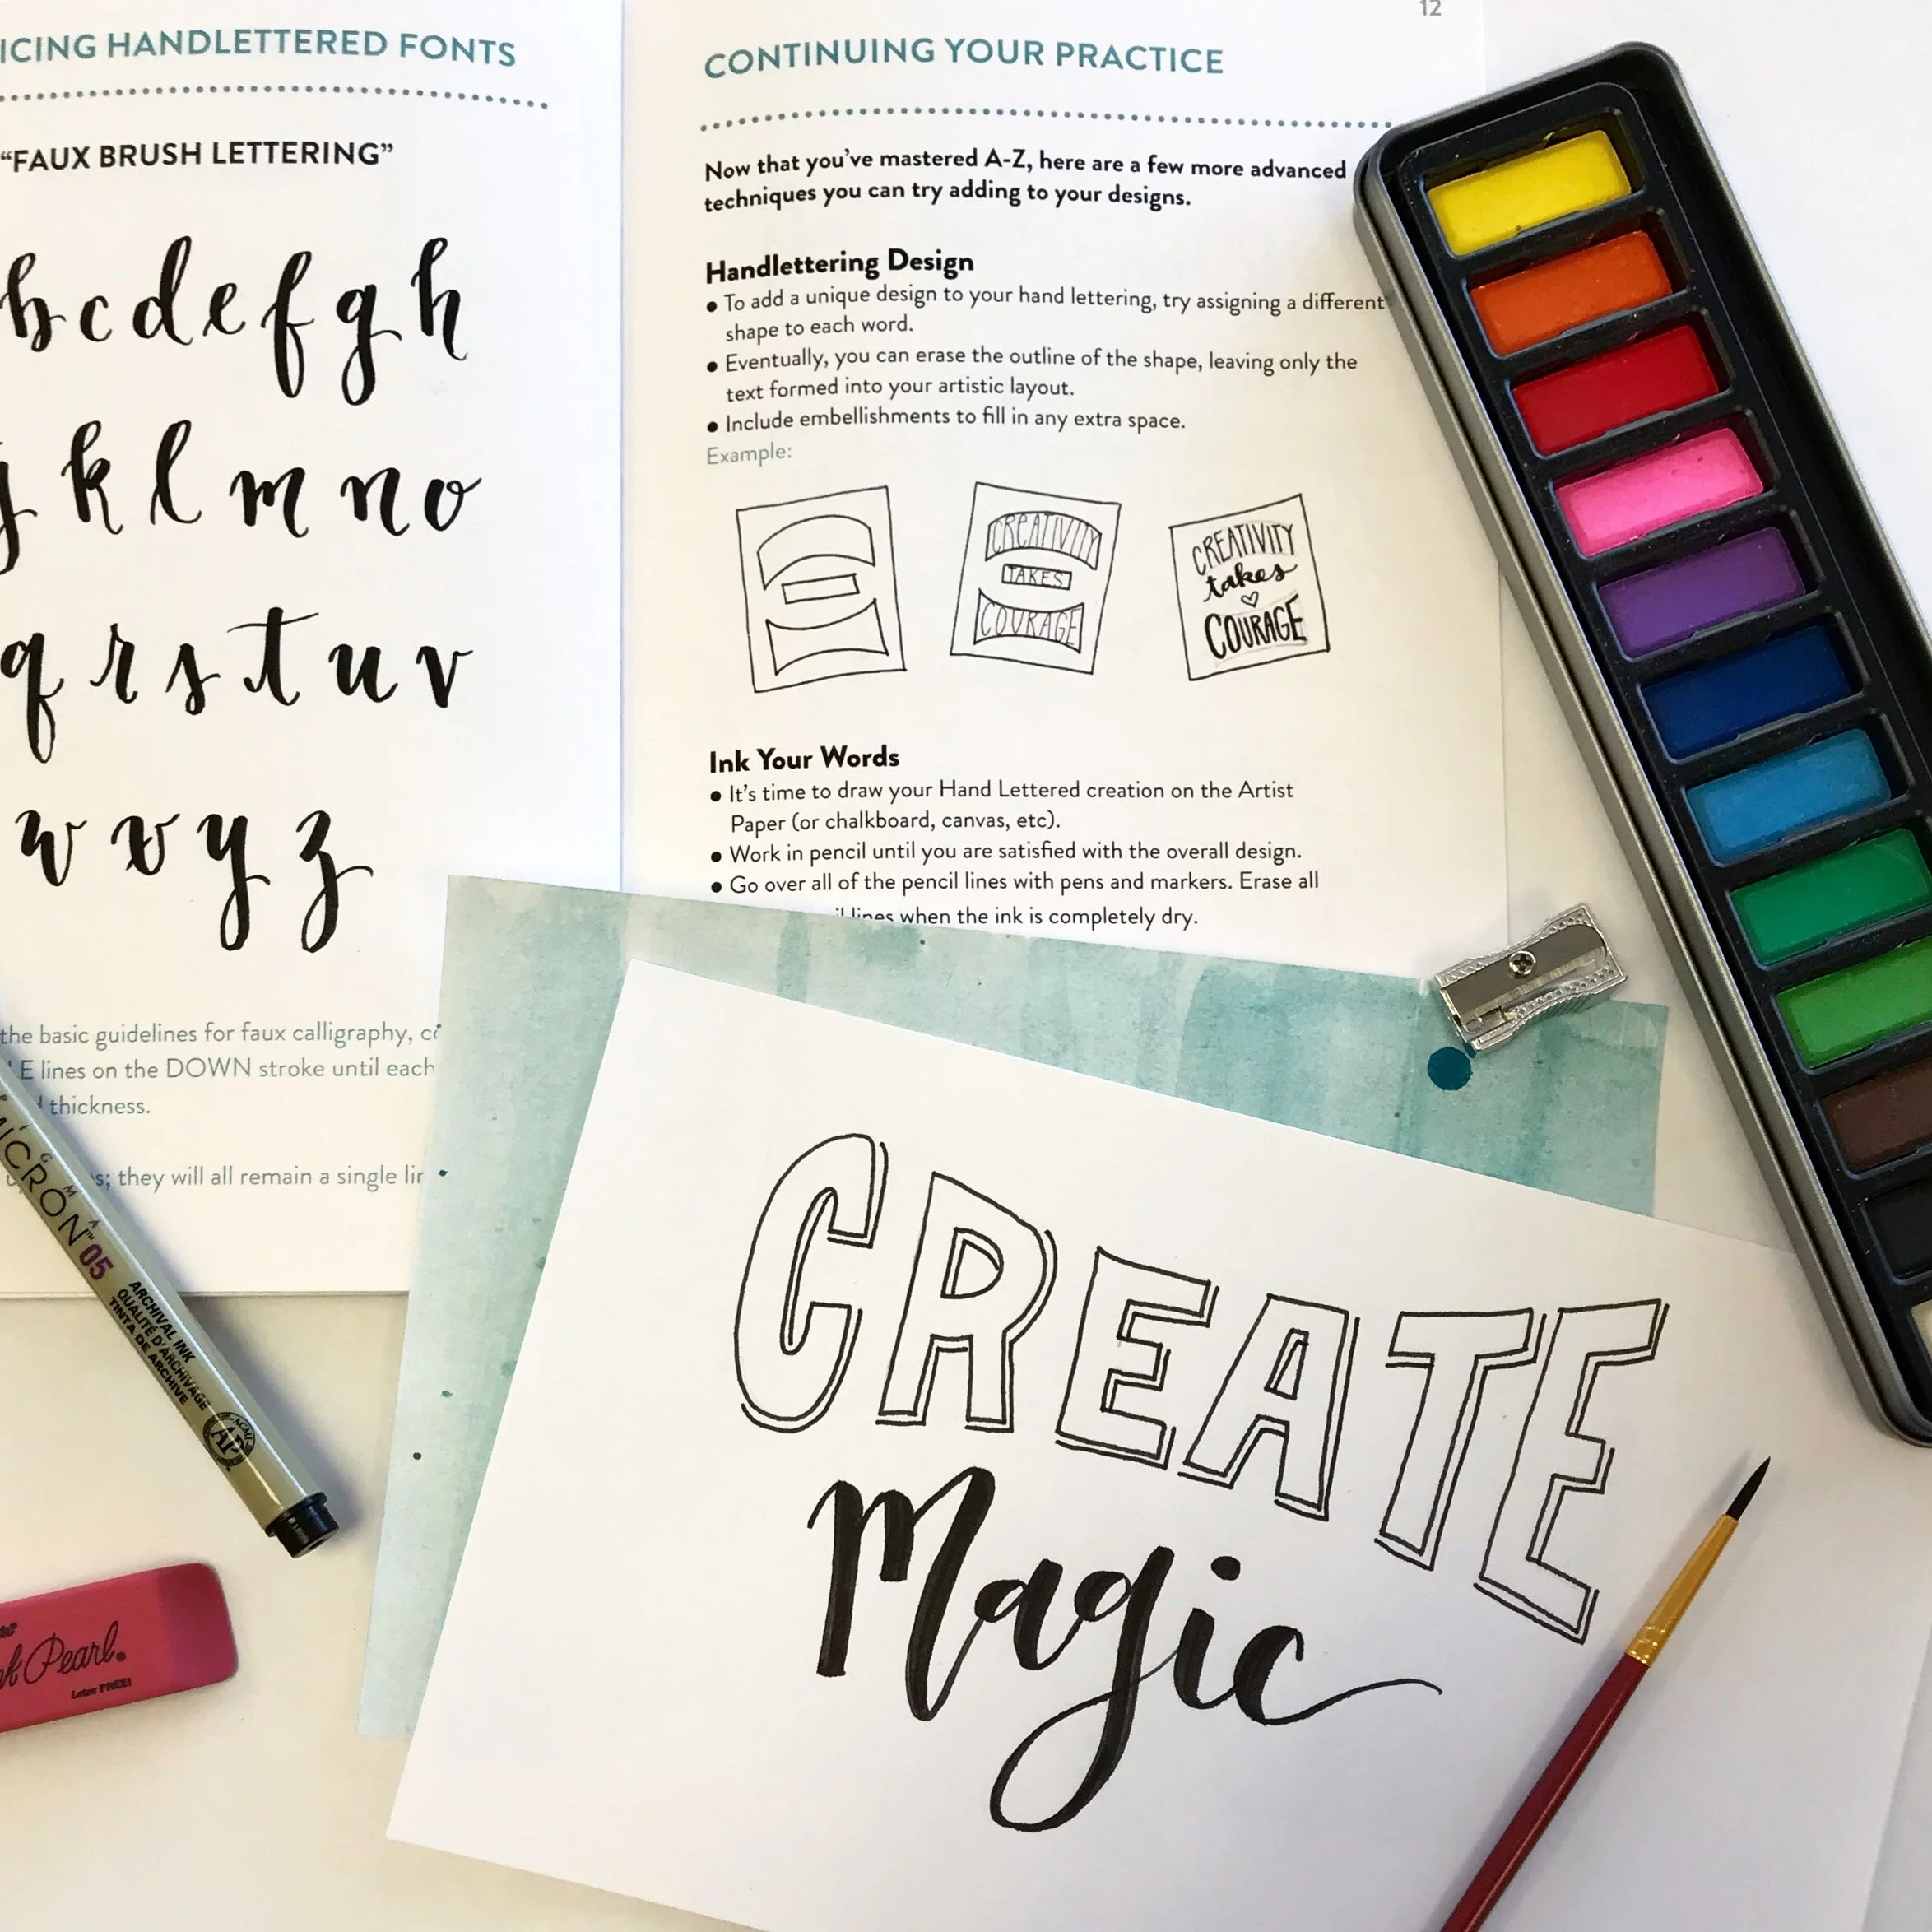 HANDLETTERED FONTS
"FAUX BRUSH LETTERING"
b c d e f g h
j k l m n o
q r s t u v
w x y z
the basic guidelines for faux calligraphy,
lines on the DOWN stroke until each
thickness.
they will all remain a single
12
CONTINUING YOUR PRACTICE
Now that you've mastered A-Z, here are a few more advanced
techniques you can try adding to your designs.
Handlettering Design
• To add a unique design to your hand lettering, try assigning a different
shape to each word.
• Eventually, you can erase the outline of the shape, leaving only the
text formed into your artistic layout.
• Include embellishments to fill in any extra space.
Example:
CREATIVITY
TAKES
COURAGE
CREATIVITY
takes
COURAGE
Ink Your Words
• It's time to draw your Hand Lettered creation on the Artist
Paper (or chalkboard, canvas, etc).
• Work in pencil until you are satisfied with the overall design.
• Go over all of the pencil lines with pens and markers. Erase all
lines when the ink is completely dry.
MICRON™ 05
ARCHIVAL INK
QUALITÉ D'ARCHIVAGE
TINTA DE ARCHIVE
ACMI
AP
Pearl®
Latex FREE!
CREATE
Magic